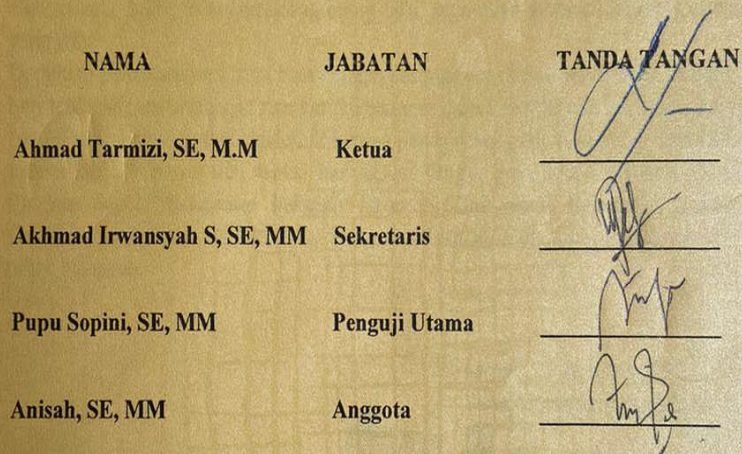 NAMA JABATAN TANDA TANGAN
Ahmad Tarmizi, SE, M.M Ketua
Akhmad Irwansyah S, SE, MM Sekretaris
Pupu Sopini, SE, MM Penguji Utama
Anisah, SE, MM Anggota